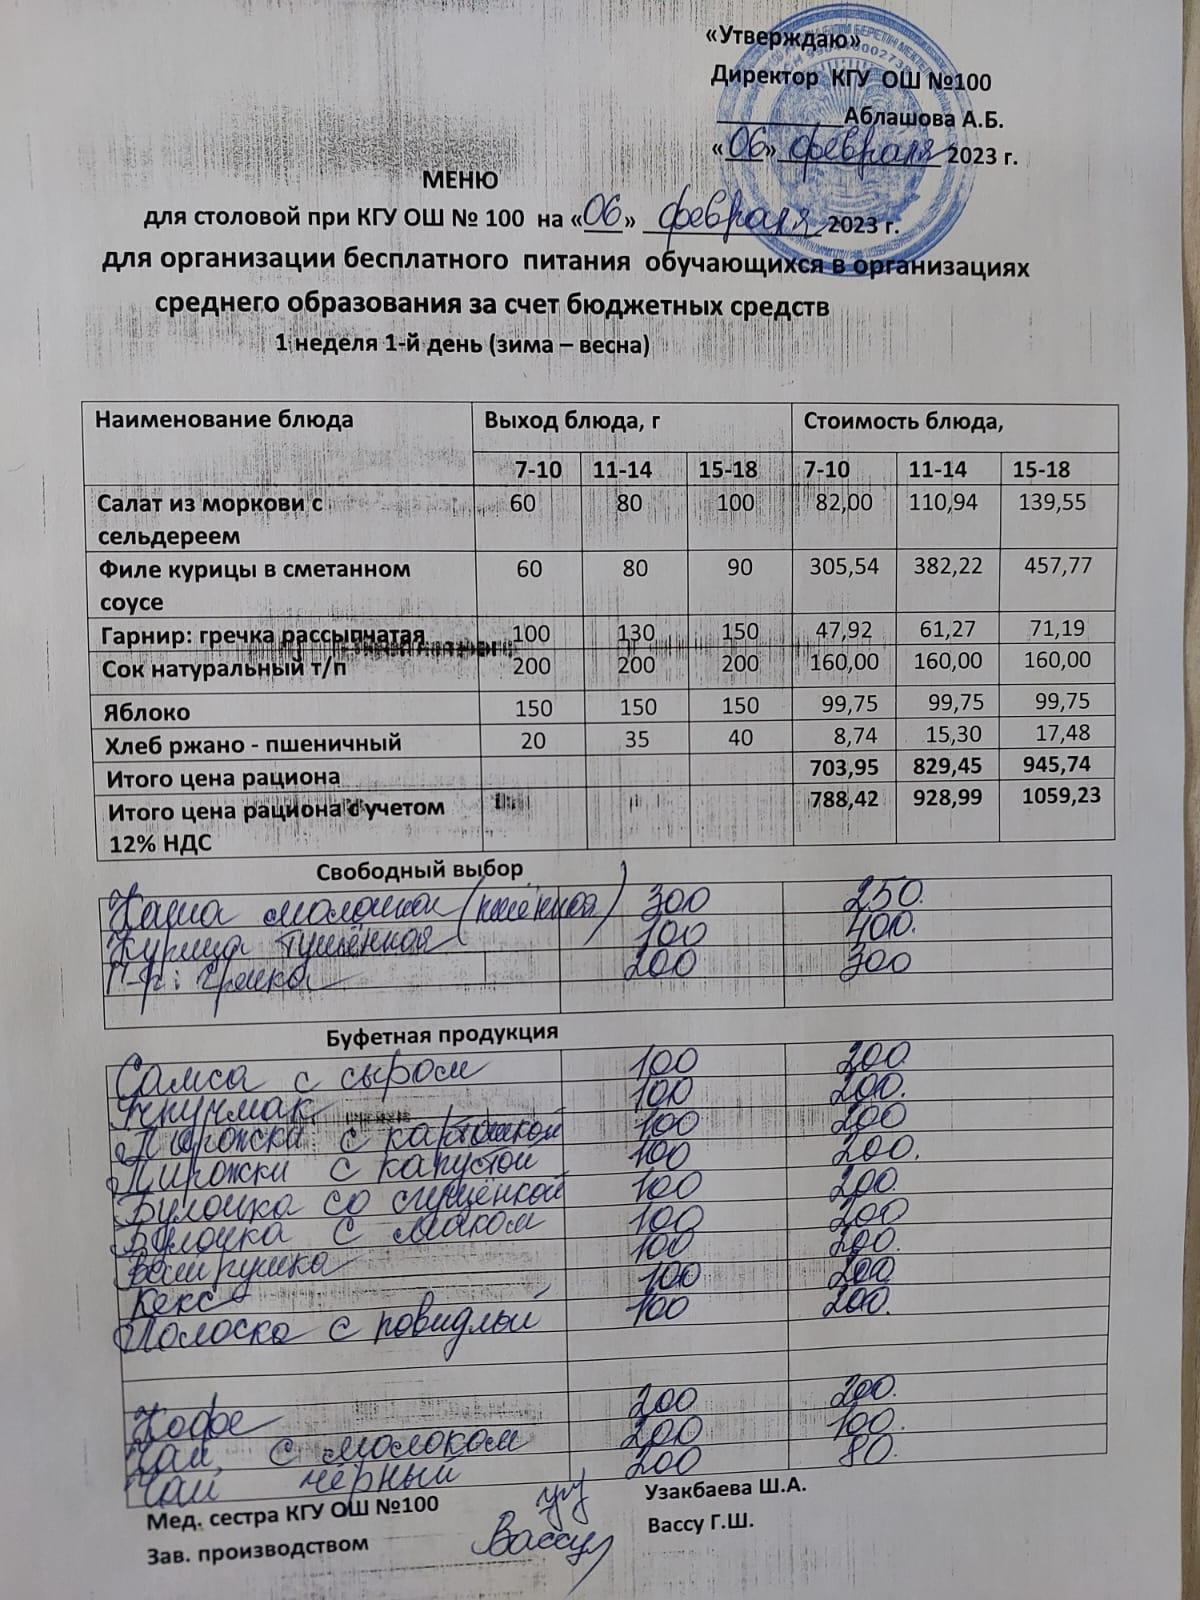 «Утверждаю»
Директор КГУ ОШ №100
____________Аблашова А.Б.
«06» февраля 2023 г.
МЕНЮ
для столовой при КГУ ОШ № 100 на «06» февраля 2023 г.
для организации бесплатного питания обучающихся в организациях
среднего образования за счет бюджетных средств
1 неделя 1-й день (зима – весна)
Наименование блюда Выход блюда, г Стоимость блюда,
7-10 11-14 15-18 7-10 11-14 15-18
Салат из моркови с 60 80 100 82,00 110,94 139,55
сельдереем
Филе курицы в сметанном 60 80 90 305,54 382,22 457,77
соусе
Гарнир: гречка рассыпчатая 100 130 150 47,92 61,27 71,19
Сок натуральный т/п 200 200 200 160,00 160,00 160,00
Яблоко 150 150 150 99,75 99,75 99,75
Хлеб ржано - пшеничный 20 35 40 8,74 15,30 17,48
Итого цена рациона 703,95 829,45 945,74
Итого цена рациона с учетом 788,42 928,99 1059,23
12% НДС
Свободный выбор
Каша молочная (пшённая) 300 250.
Курица тушённая 100 400.
Г-р: гречка 200 300
Буфетная продукция
Самса с сыром 100 200.
100 200.
Пирожки с картошкой 100 200
Пирожки с капустой 100 200.
Булочка со сгущёнкой 100 200
Булочка с маком 100 200
Ватрушка 100 200.
Кекс 100 200
Полоска с повидлой 100 200.
Кофе 200 200.
Чай с молоком 200 100.
Чай чёрный 200 80.
Мед. сестра КГУ ОШ №100 Узакбаева Ш.А.
Зав. производством Вассу Вассу Г.Ш.